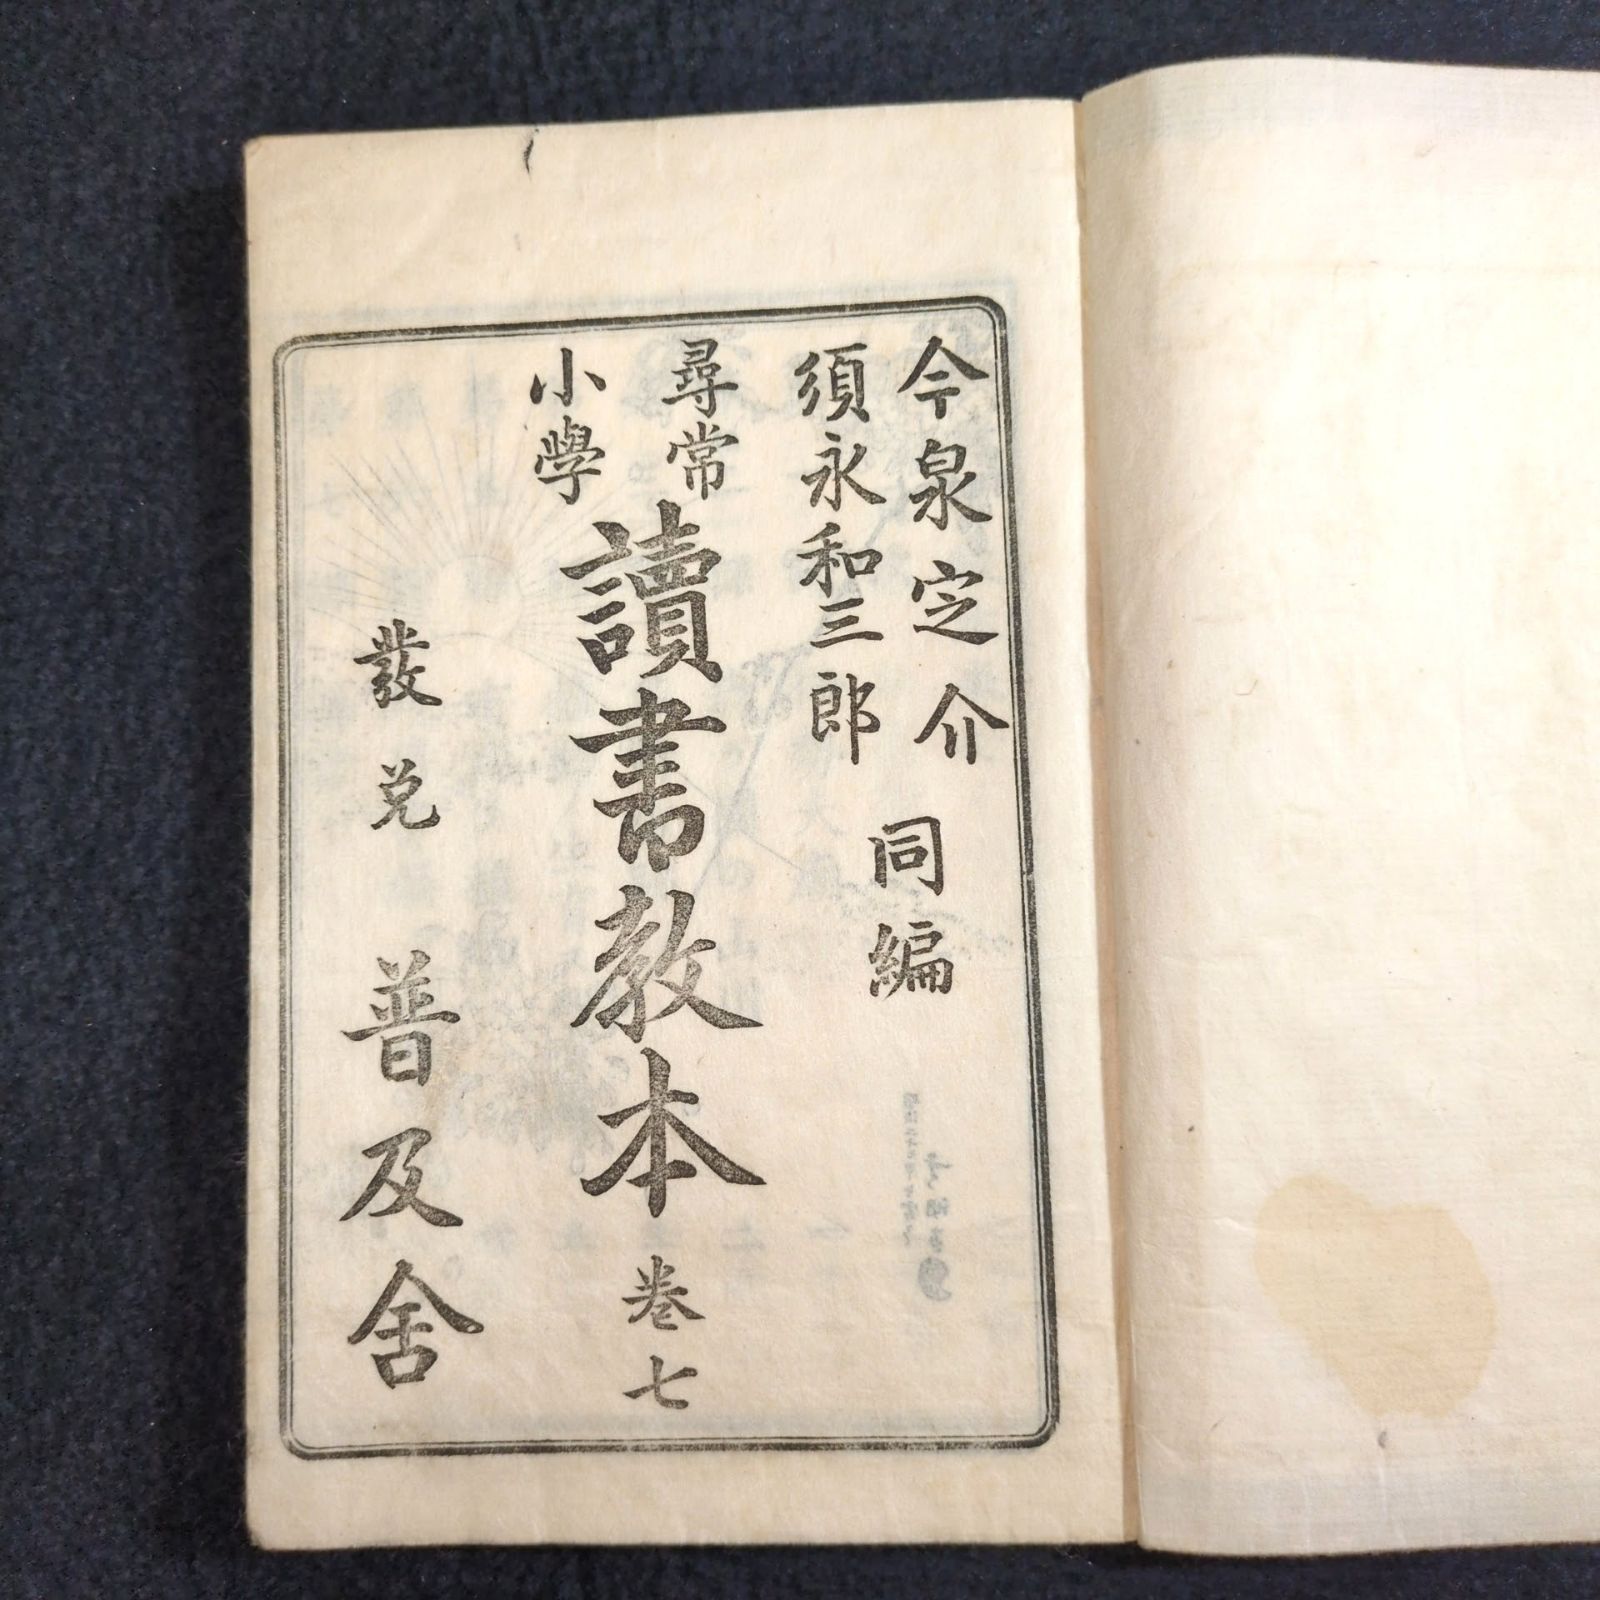 今泉定介
須永和三郎
同編
尋常
小學
讀書教本 卷七
發兌 普及舍